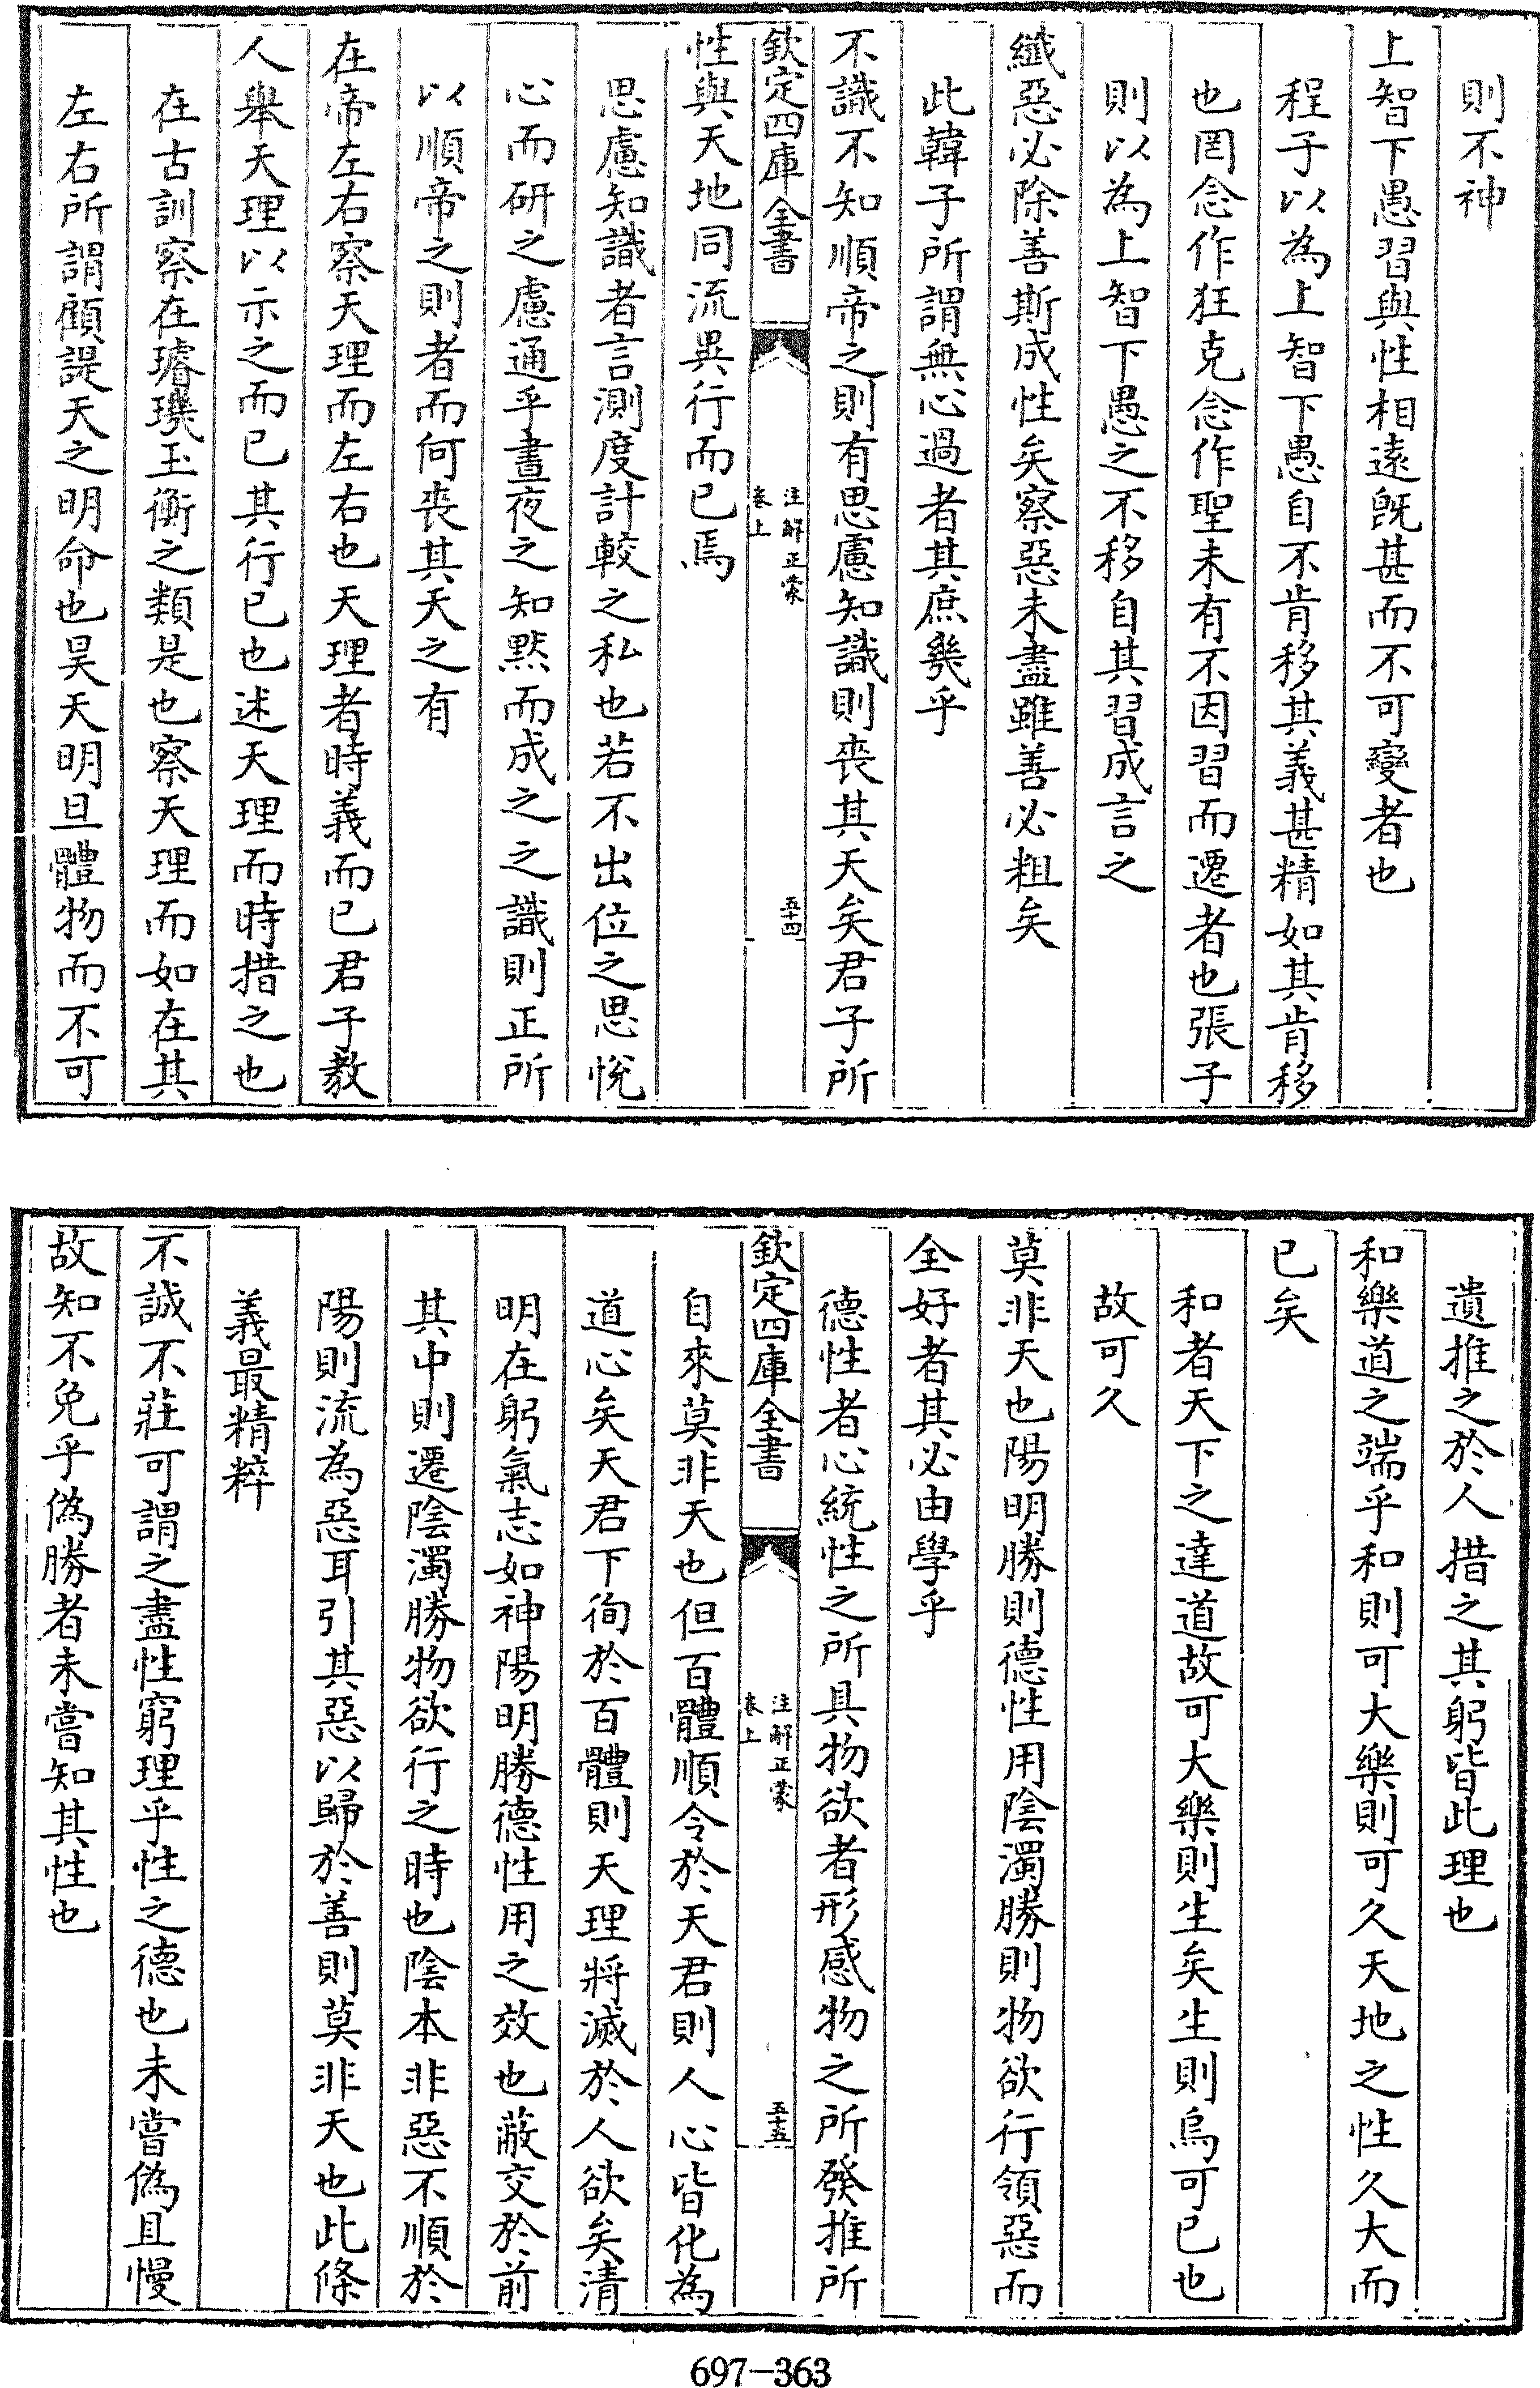 則不神
上智下愚習與性相遠旣甚而不可變者也
程子以為上智下愚自不肯移其義甚精如其肯移
也罔念作狂克念作聖未有不因習而遷者也張子
則以為上智下愚之不移自其習成言之
纖惡必除善斯成性矣察惡未盡雖善必粗矣
此韓子所謂無心過者其庶幾乎
不識不知順帝之則有思慮知識則喪其天矣君子所
欽定四庫全書
注解正蒙
卷上
五十四
性與天地同流異行而已焉
思慮知識者言測度計較之私也若不出位之思悅
心而研之慮通乎晝夜之知黙而成之之識則正所
以順帝之則者而何喪其天之有
在帝左右察天理而左右也天理者時義而已君子教
人舉天理以示之而已其行已也述天理而時措之也
在古訓察在璿璣玉衡之類是也察天理而如在其
左右所謂顧諟天之明命也昊天明旦體物而不可
遺推之於人措之其躬皆此理也
和樂道之端乎和則可大樂則可久天地之性久大而
已矣
和者天下之達道故可大樂則生矣生則烏可已也
故可久
莫非天也陽明勝則德性用陰濁勝則物欲行領惡而
全好者其必由學乎
德性者心統性之所具物欲者形感物之所發推所
欽定四庫全書
注解正蒙
卷上
五十五
自來莫非天也但百體順令於天君則人心皆化為
道心矣天君下徇於百體則天理將滅於人欲矣清
明在躬氣志如神陽明勝德性用之效也蔽交於前
其中則遷陰濁勝物欲行之時也陰本非惡不順於
陽則流為惡耳引其惡以歸於善則莫非天也此條
義最精粹
不誠不莊可謂之盡性窮理乎性之德也未嘗偽且慢
故知不免乎偽勝者未嘗知其性也
697-363